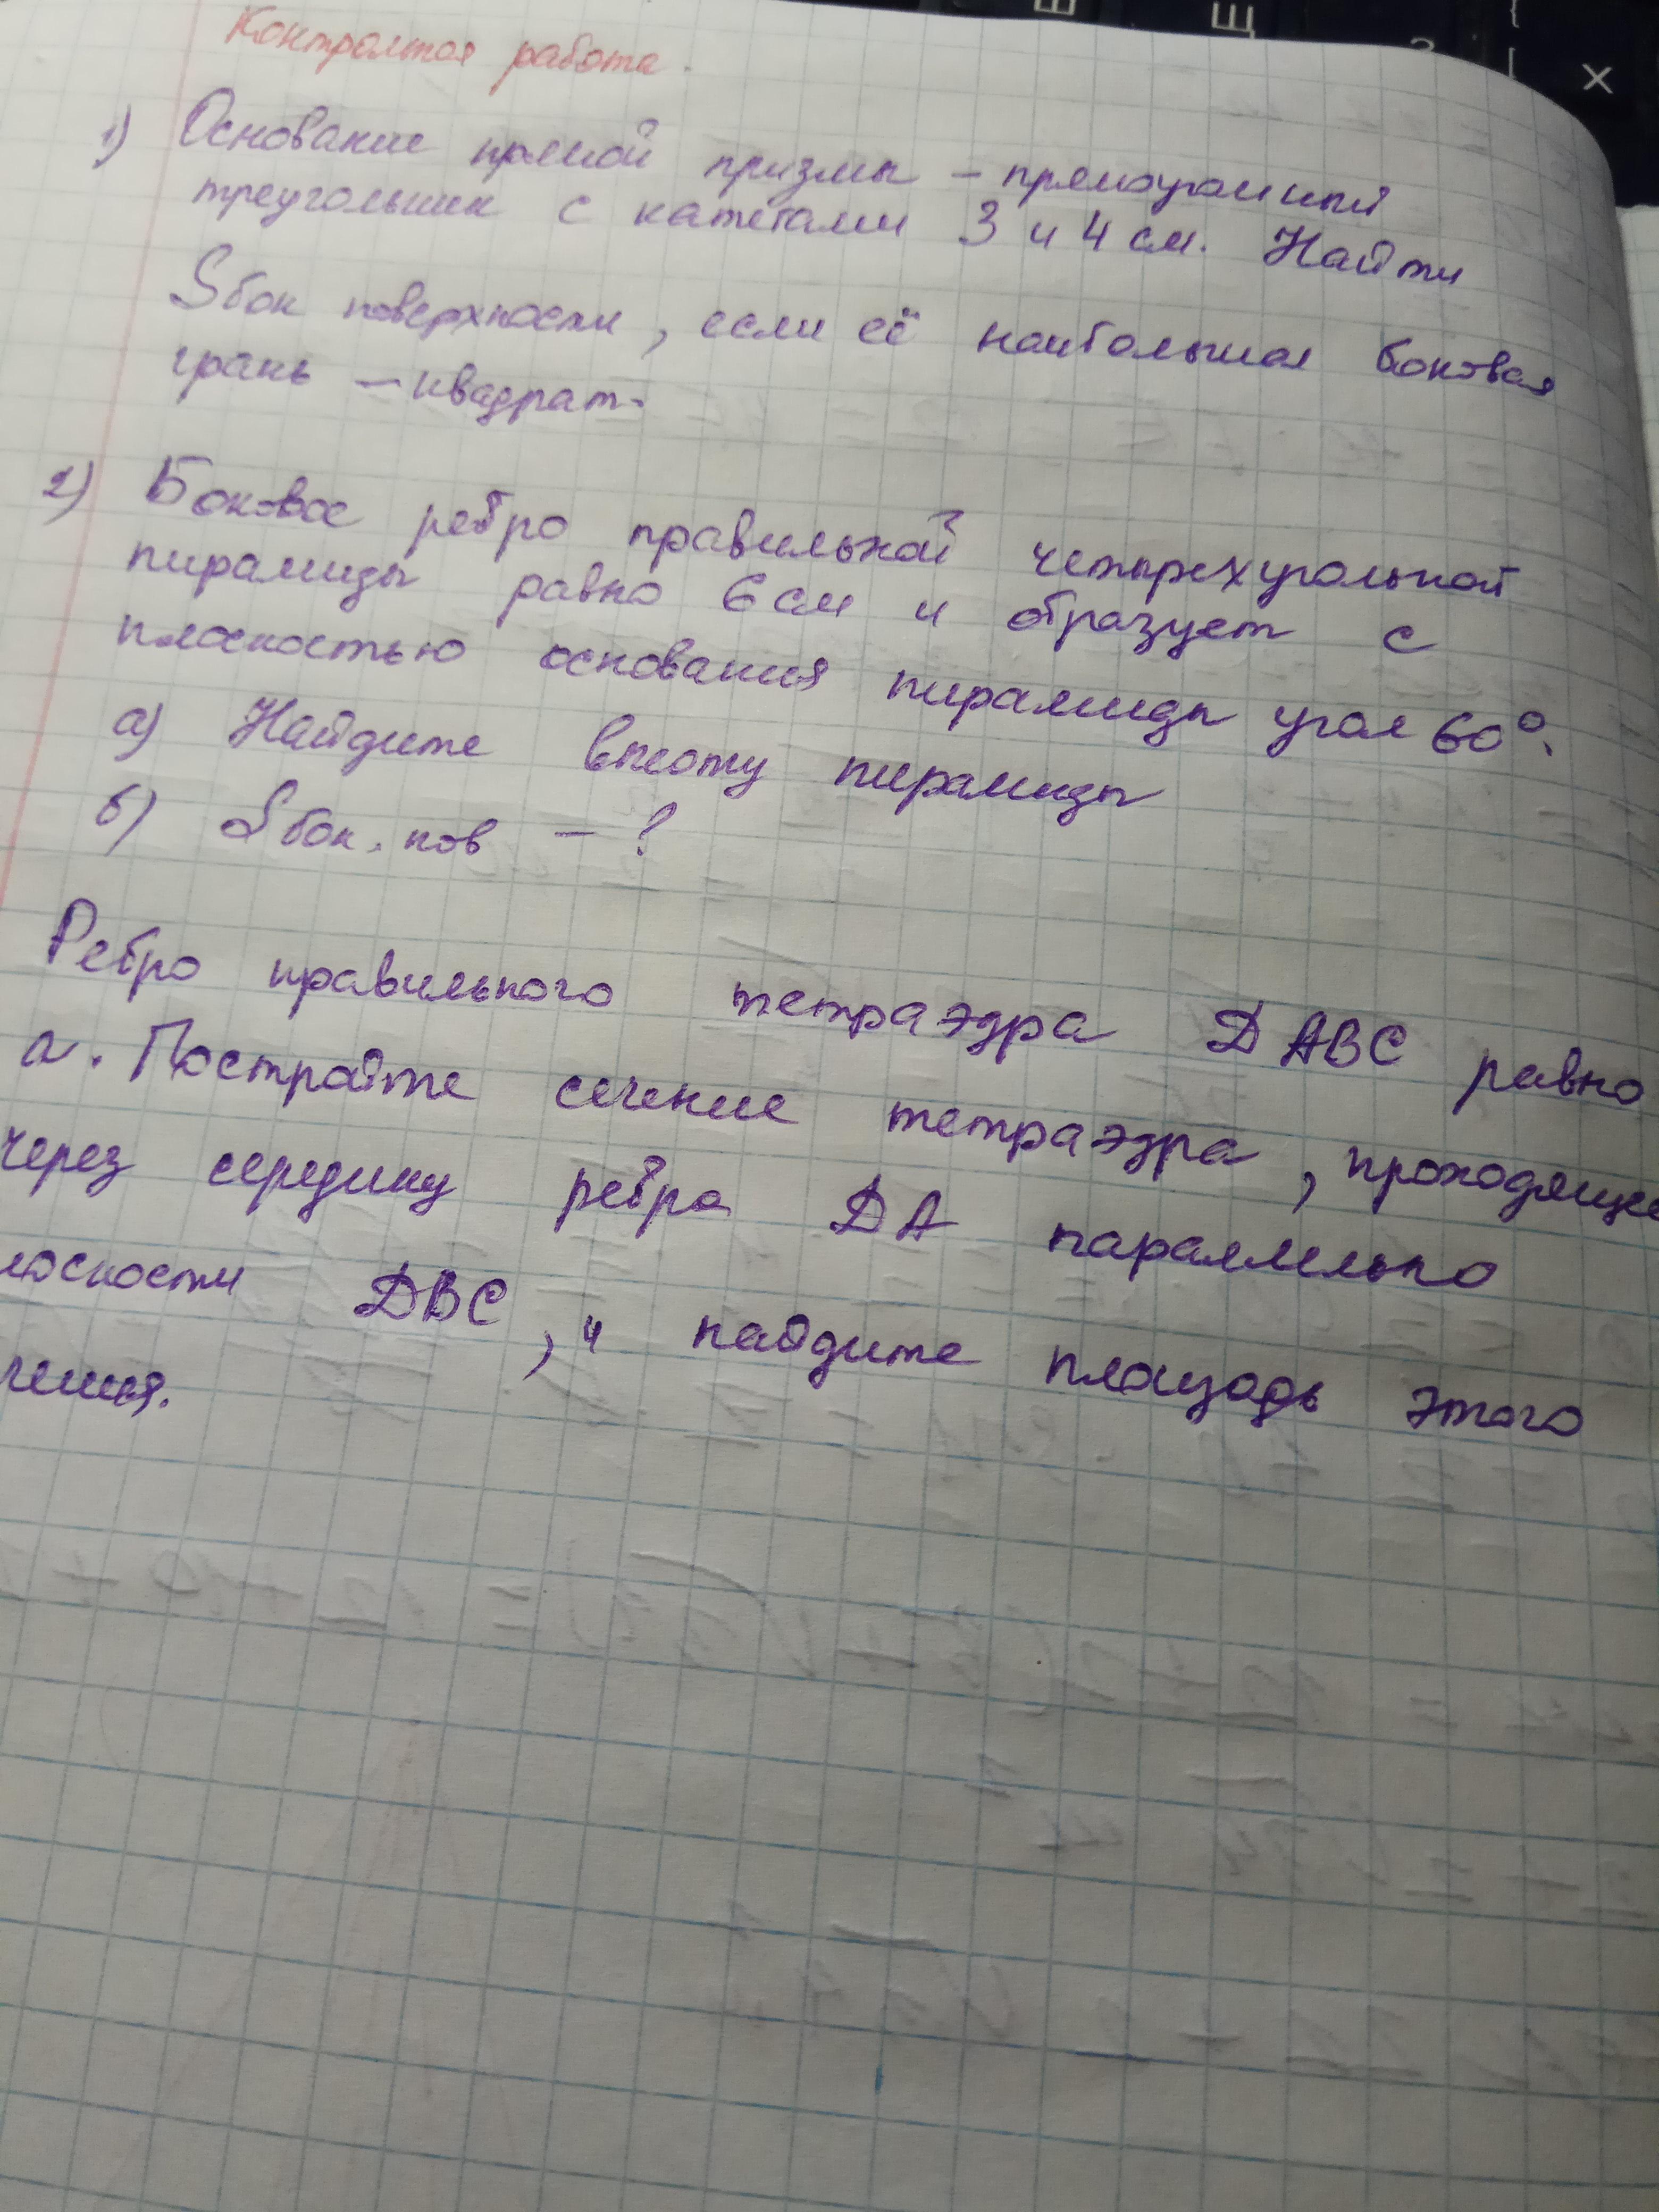 Контролтоя работа.
1) Основание прямой призмы – прямоугольный
треугольник с катетами 3 и 4 см. Найти
Sбок поверхности, если её наибольшая боковая
грань – квадрат.
2) Боковое ребро правильной четырехугольной
пирамиды равно 6 см и образует с
плоскостью основания пирамиды угол 60°.
а) Найдите высоту пирамиды
б) Sбок. пов – ?
Ребро правильного тетраэдра DABC равно
а. Постройте сечение тетраэдра, проходяще
через середину ребра DA параллельно
лоскости DBC, и найдите площадь этого
чения.